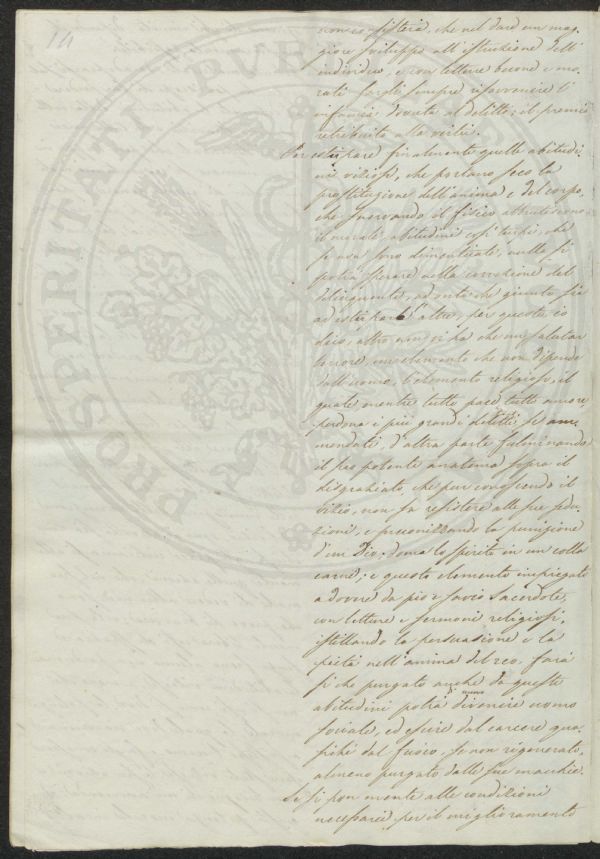 14
non consisterà, che nel dare un mag-
giore sviluppo all'istruzione dell'
individuo, e con letture buone e mo-
rali fargli sempre risovvenire l'
infamia dovuta al delitto; il premio
retribuito alla virtù.
Per estirpare finalmente quelle abitudi-
ni viziose, che portano seco la
prostituzione dell'anima e del corpo,
che snervando il fisico abbrutiscono
il morale, abitudini così turpi, che
se non sono dimenticate, nulla si
potrà sperare nella correzione del
delinquente, ad onta che giunto sia
ad estirpare le altre, per questo io
dico, altro non vi ha che un salutar
terrore, un elemento che non dipende
dall'uomo, l'elemento religioso, il
quale mentre tutto pace tutto amore
perdona i più grandi delitti se am-
mendati, d'altra parte fulminando
il più potente anatema sopra il
disgraziato, che pur conoscendo il
vizio, non sa resistere alle sue sedu-
zioni, e preconizzando la punizione
d'un Dio, doma lo spirito in un colla
carne; e questo elemento impiegato
a dovere da pio e savio Sacerdote,
con letture e sermoni religiosi,
istillando la persuasione e la
pietà nell'anima del reo, farà
sì che purgato anche da queste
abitudini potrà divenire uomo
sociale, ed escire dal carcere qua-
si chi dal fuoco, se non rigenerato,
almeno purgato dalle sue macchie.
Se si pon mente alle condizioni
necessarie per il miglioramento
PROSPERITATI PVBLICAE